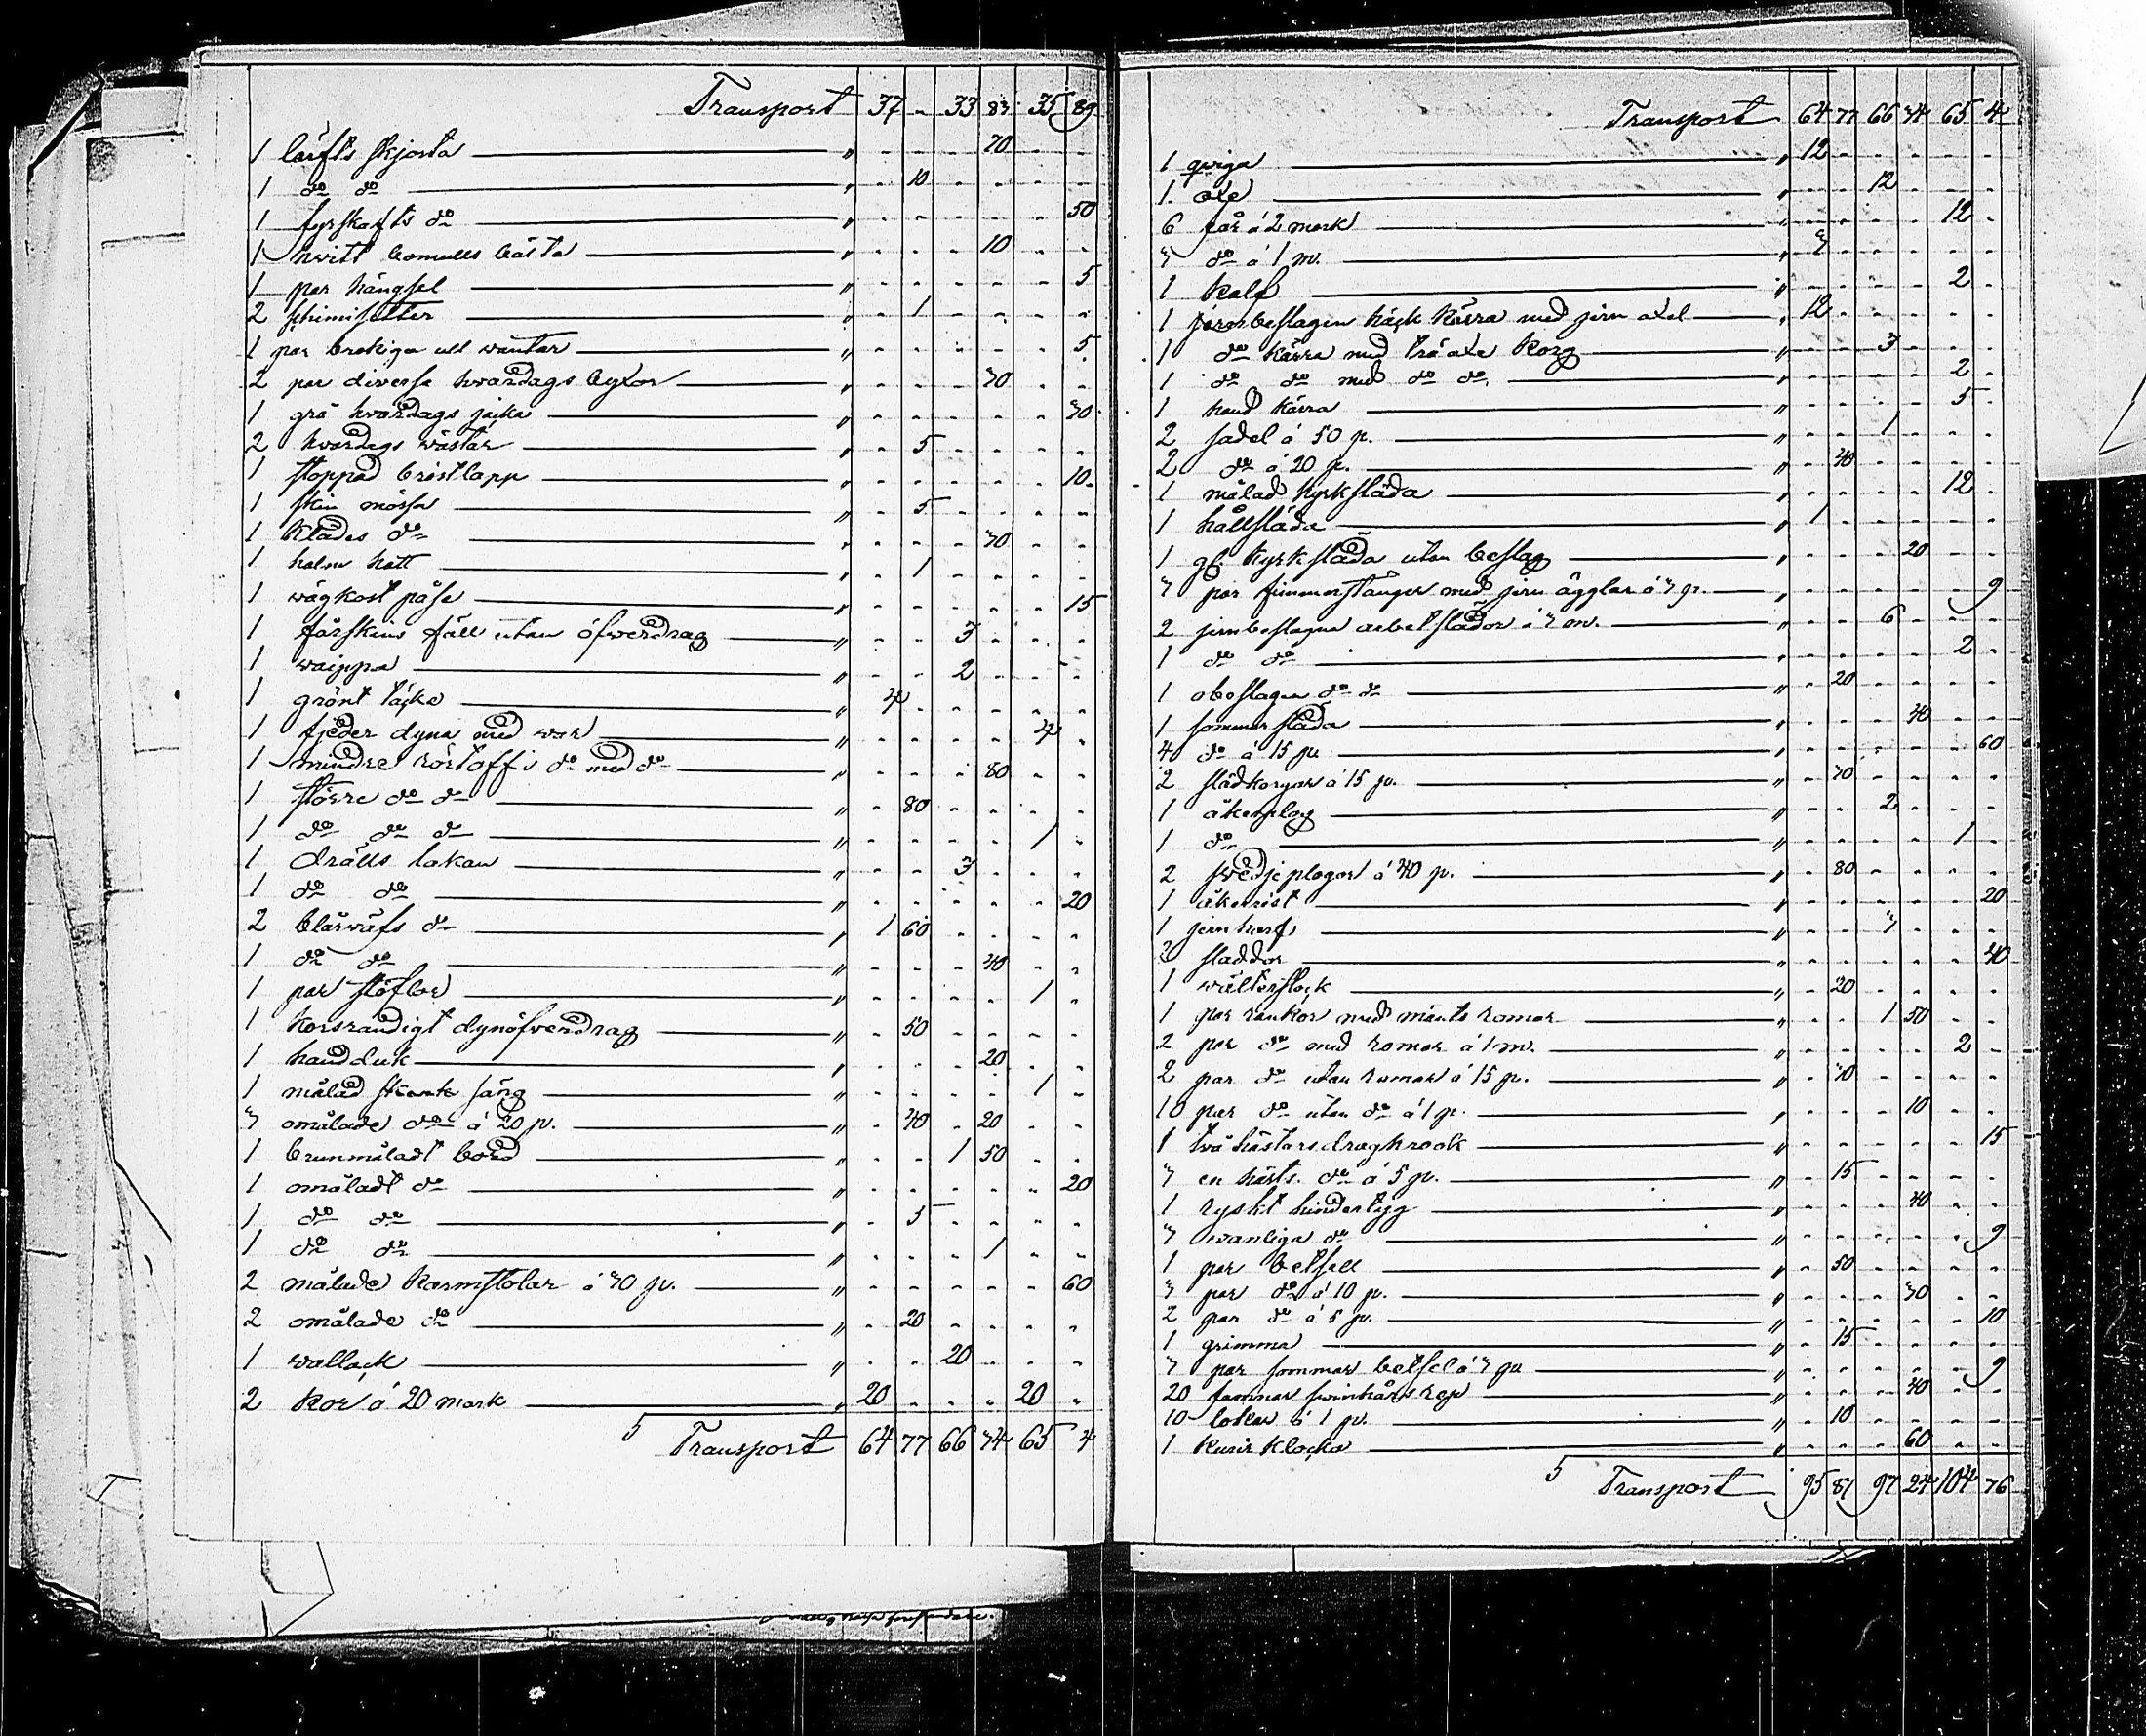 Transport 37 - 33 83 35 89
1 lärfts skjorta " - - - 70 - -
1 do do " - 10 - - - -
1 fyrskafts do " - - - - - 50
1 hvitt bomulls bälta " - - - 10 - -
1 par hängsel " - - - - - 5
2 schimisetter " - 1 - - - -
1 par brokiga ull wantar " - - - - - 5
2 par diverse hvardags byxor " - - - 30 - -
1 grå hvardags jacka " - - - - - 30
2 hvardags wästar " - 5 - - - -
1 stoppad bröstlapp " - - - - - 10
1 skin mössa " - 5 - - - -
1 klädes do " - - - 30 - -
1 halm hatt " - 1 - - - -
1 wägkost påse " - - - - - 15
1 fårskins fäll utan öfwerdrag " - - 3 - - -
1 waippa " - - 2 - - -
1 grönt täcke " 4 - - - - -
1 fjeder dyna med war " - - - - 4 -
1 mindre rörtoffs do med do " - - - 80 - -
1 större do do " - 80 - - - -
1 do do do " - - - - 1 -
1 drälls lakan " - - 3 - - -
1 do do " - - - - - 20
2 blärwäfs do " 1 60 - - - -
1 do do " - - - 40 - -
1 par stöflor " - - - - 1 -
1 korsrandigt dynöfverdrag " - 50 - - - -
1 handduk " - - - 20 - -
1 målad säng " - - - - 1 -
3 omålade do á 20 p. " - 40 - 20 - -
1 brunmåladt bord " - - 1 50 - -
1 omåladt do " - - - - - 20
1 do do " - 5 - - - -
1 do do " - - - 1 - -
2 målade karmstolar á 30 p. " - - - - - 60
2 omålade do " - 20 - - - -
1 wallack " - - 20 - - -
2 kor á 20 mark " 20 - - - 20 -
5 Transport 64 77 66 74 65 4
Transport 64 77 66 74 65 4
1 qwiga " 12 - - - - -
1 oxe " - - 12 - - -
6 får á 2 mark " - - - - 12 -
3 do á 1 m. " 3 - - - - -
1 kalf " - - - - 2 -
1 jernbeslagen häck kärra med jern axel " 12 - - - - -
1 do kärra med trä axe korg " - - 3 - - -
1 do do med do do " - - - - 2 -
1 hand kärra " - - - - 5 -
2 sadel á 50 p. " - - 1 - - -
2 do á 20 p. " - 40 - - - -
1 målad kyrksläda " - - - - 12 -
1 hållsläda " 1 - - - - -
1 gl. kyrksläda utan beslag " - - - 20 - -
3 par fimmerstänger med jern ögglar á 3 p. " - - - - - 9
2 jernbeslagna arbetslädor á 3 m. " - - 6 - - -
1 do do " - - - - 2 -
1 obeslagen do do " - 20 - - - -
1 sommar släda " - - - 40 - -
4 do á 15 p. " - - - - - 60
2 slädkorgar á 15 p. " - 30 - - - -
1 åkerplog " - - 2 - - -
1 do " - - - - 1 -
2 swedjeplogar á 40 p. " - 80 - - - -
1 åkerrist " - - - - - 20
1 jernharf " - - 3 - - -
2 sladdor " - - - - - 40
1 wälterstock " - 20 - - - -
1 par rankor med mants romar " - - 1 50 - -
2 par do med romar á 1 m. " - - - - 2 -
2 par do utan romar á 15 p. " - 30 - - - -
10 par do utan do á 1 p. " - - - 10 - -
1 två hästars dragkrook " - - - - - 15
3 en hästs. do á 5 p. " - 15 - - - -
1 ryskt hindertyg " - - - 40 - -
3 wanliga do " - - - - - 9
1 par betsell " - 50 - - - -
3 par do á 10 p. " - - - 30 - -
2 par do á 5 p. " - - - - - 10
1 grimma " - 15 - - - -
3 par sommar betsel á 3 p. " - - - - - 9
20 famnar swinhårs rep " - - - 40 - -
10 lokar á 1 p. " - 10 - - - -
1 kurir klocka " - - - 60 - -
5 Transport 95 87 97 24 104 76